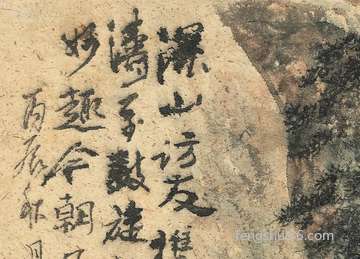 深山访友
涛至鼓
妙趣今朝
丙辰秋月
fengshui86.com